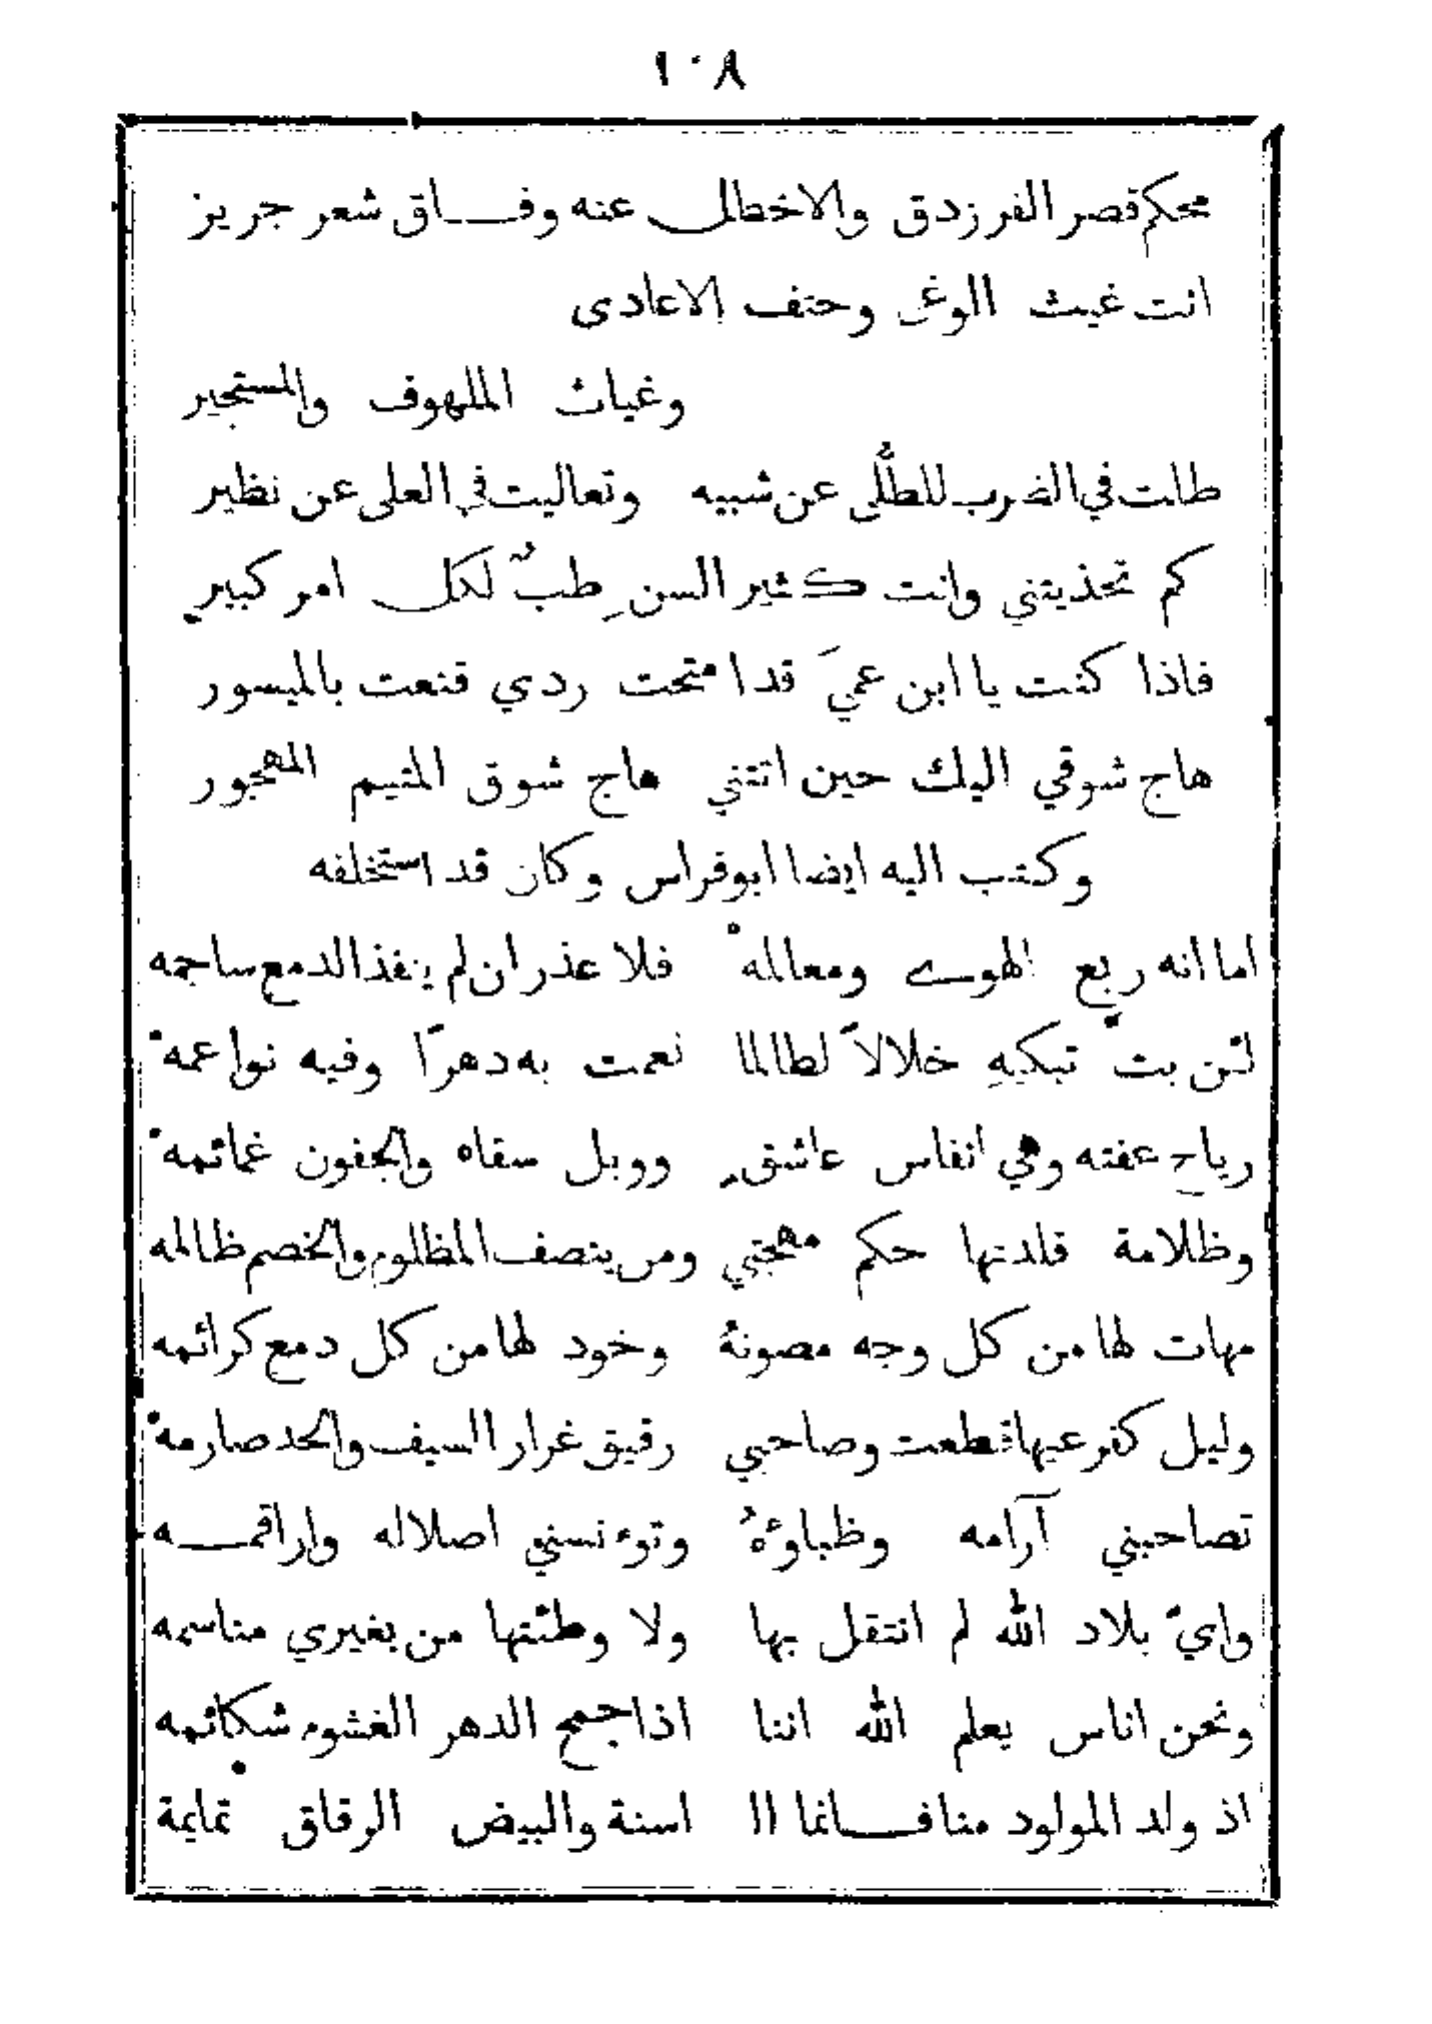 ١٠٨
محكم قصر الفرزدق والاخطال عنه وفاق شعر جريز
انت غيث الوغى وحتف الاعادى
وغياث الملهوف والمستجير
طلت في الضرب للطُّلى عن شبيه وتعاليت في العلى عن نظير
كم تحذيتني وانت كثير السن طبٌ لكل امر كبير
فاذا كنت يا ابن عميَ قد امتحت ردي قنعت بالميسور
هاج شوقي اليك حين اتتني هاج شوق المتيم المهجور
وكتب اليه ايضا ابو فراس وكان قد استخلفه
اما انه ربع الهوى ومعالمهْ فلا عذر ان لم ينفذ الدمع ساجمه
لئن بتّ تبكيهِ خلالاً لطالما نعمت به دهرًا وفيه نواعمهْ
رياح عفته وهي انفاس عاشقٍ ووبل سقاه والجفون غمائمهْ
وظلامة قلدتها حكم مهجتي ومن ينصف المظلوم والخصم ظالمه
مهات لها من كل وجه مصونةٌ وخود لها من كل دمع كرائمه
وليل كفرعيها قطعت وصاحبي رقيق غرار السيف والحد صارمهْ
تصاحبني آرامه وظباوءهُ وتوءنسني اصلاله واراقمه
وايّ بلاد الله لم انتقل بها ولا وطئتها من بغيري مناسمه
ونحن اناس يعلم الله اننا اذا جمح الدهر الغشوم شكائمه
اذ ولد المولود منا فانما ال اسنة والبيض الرقاق تمايمة